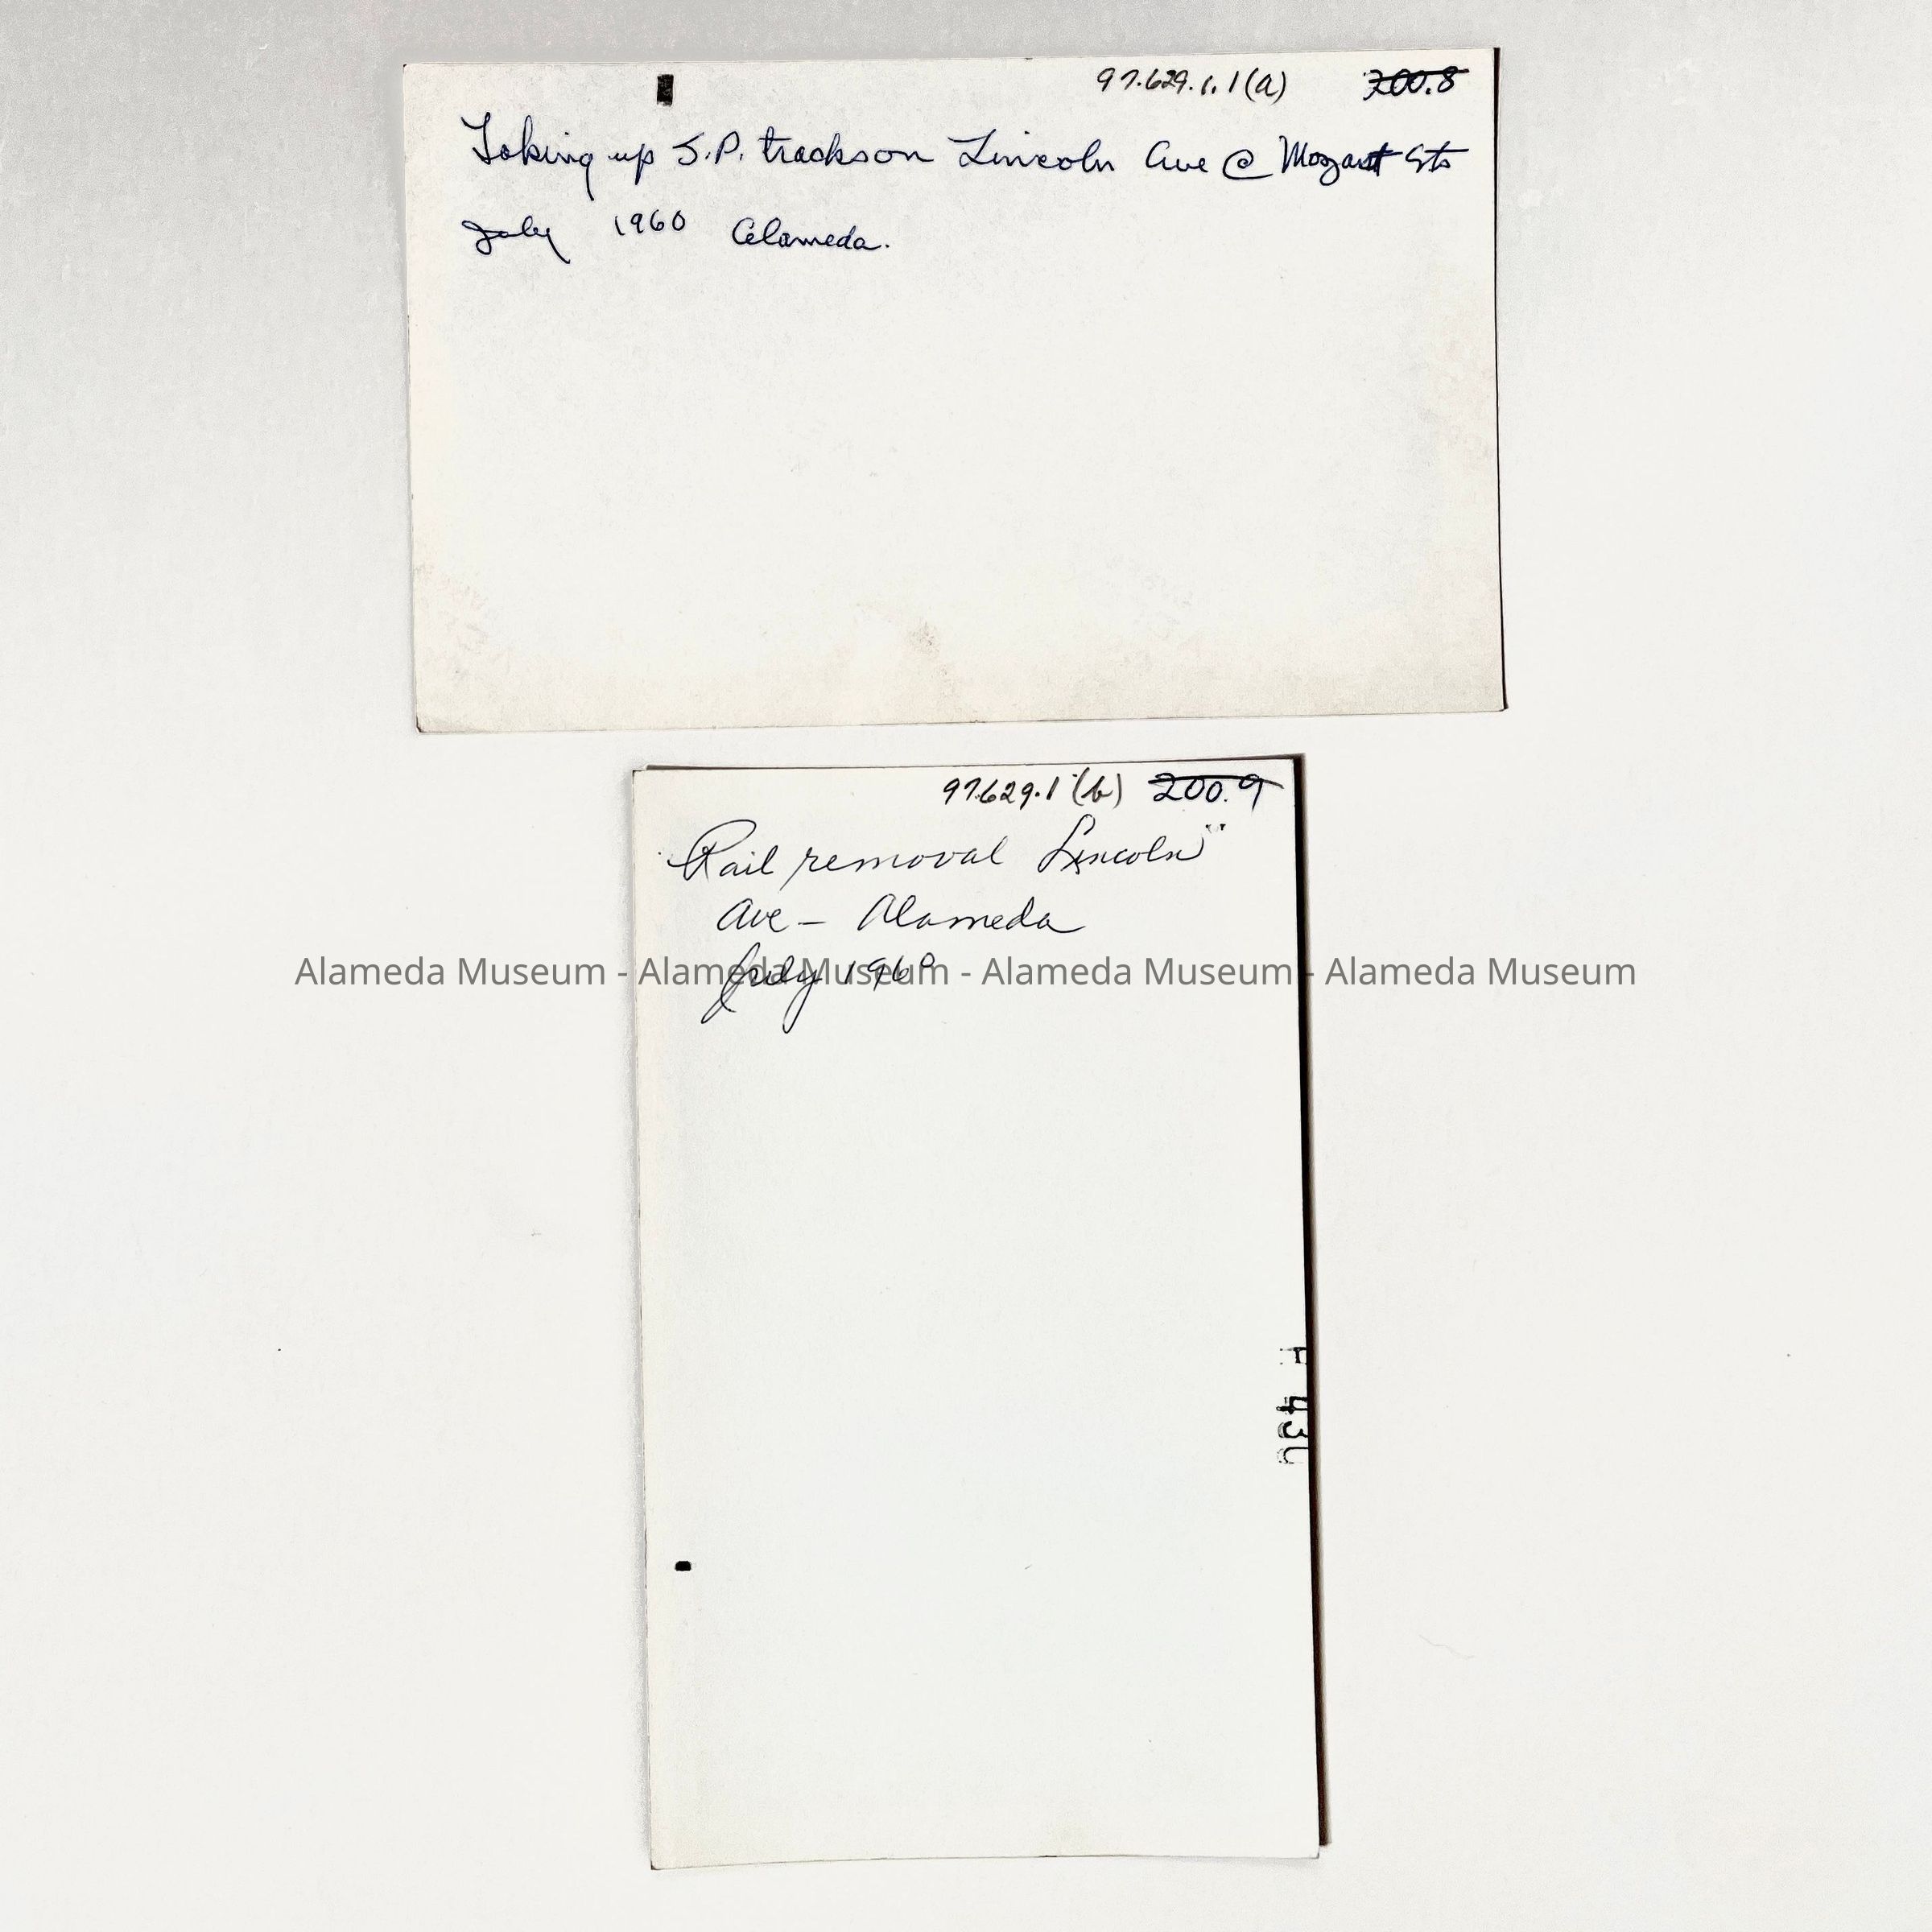 97.629.1.1(a) 200.8
Taking up S.P. tracks on Lincoln Ave @ Mozart Sts
July 1960 Alameda.
97.629.1(b) 200.9
Rail removal Lincoln
Ave – Alameda
July 1960
Alameda Museum - Alameda Museum - Alameda Museum - Alameda Museum